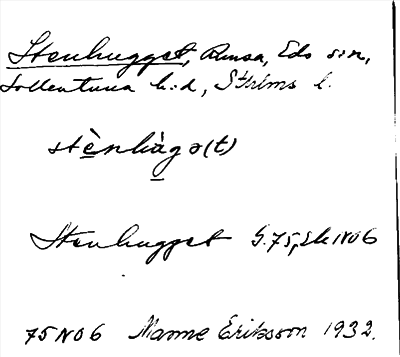 Stenhugget, Runsa, Eds sn,
Sollentuna h:d, Sthlms l.
stènhàgə(t)
Stenhugget G.75, Ek 1806
75 NO 6 Manne Eriksson 1932.